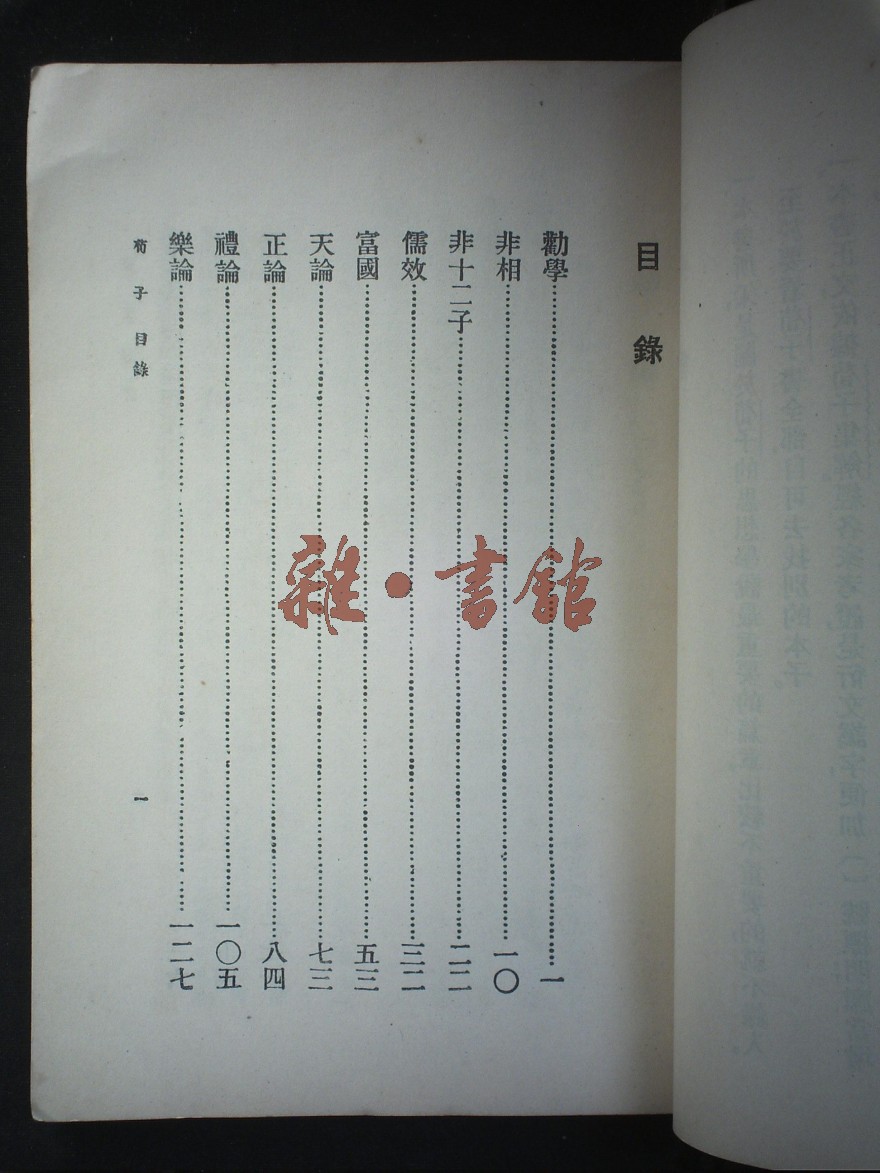 目錄
勸學……一
非相……一〇
非十二子……二二
儒效……三二
富國……五三
天論……七三
正論……八四
禮論……一〇五
樂論……一二七
荀子 目錄 一
雜·書館